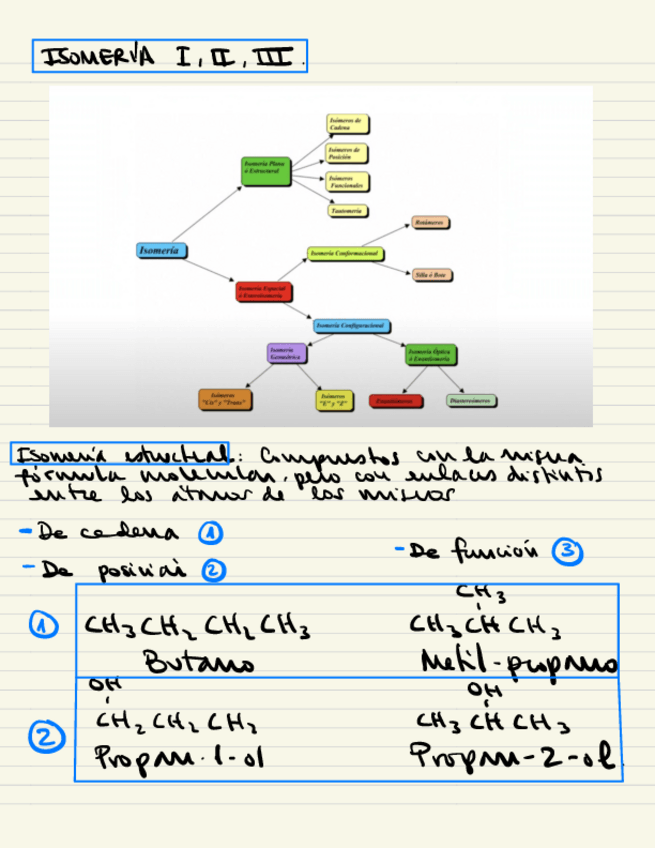 ISOMERÍA I, II, III.
Isómeros de
Cadena
Isomería Plana
ó Estructural
Isómeros de
Posición
Isómeros
Funcionales
Tautomería
Rotámeros
Isomería
Isomería Conformacional
Silla ó Bote
Isomería Espacial
ó Estereoisomería
Isomería Configuracional
Isomería
Geométrica
Isomería Óptica
ó Enantiomería
Isómeros
"Cis" y "Trans"
Isómeros
"E" y "Z"
Enantiómeros
Diasterómeros
Isomería estructural: Compuestos con la misma
fórmula molecular, pero con enlaces distintos
entre los átomos de los mismos
- De cadena ①
- De función ③
- De posición ②
CH₃
① CH₃ CH₂ CH₂ CH₃ CH₃ CH CH₃
Butano Metil-propano
OH OH
② CH₂ CH₂ CH₃ CH₃ CH CH₃
Propan-1-ol Propan-2-ol